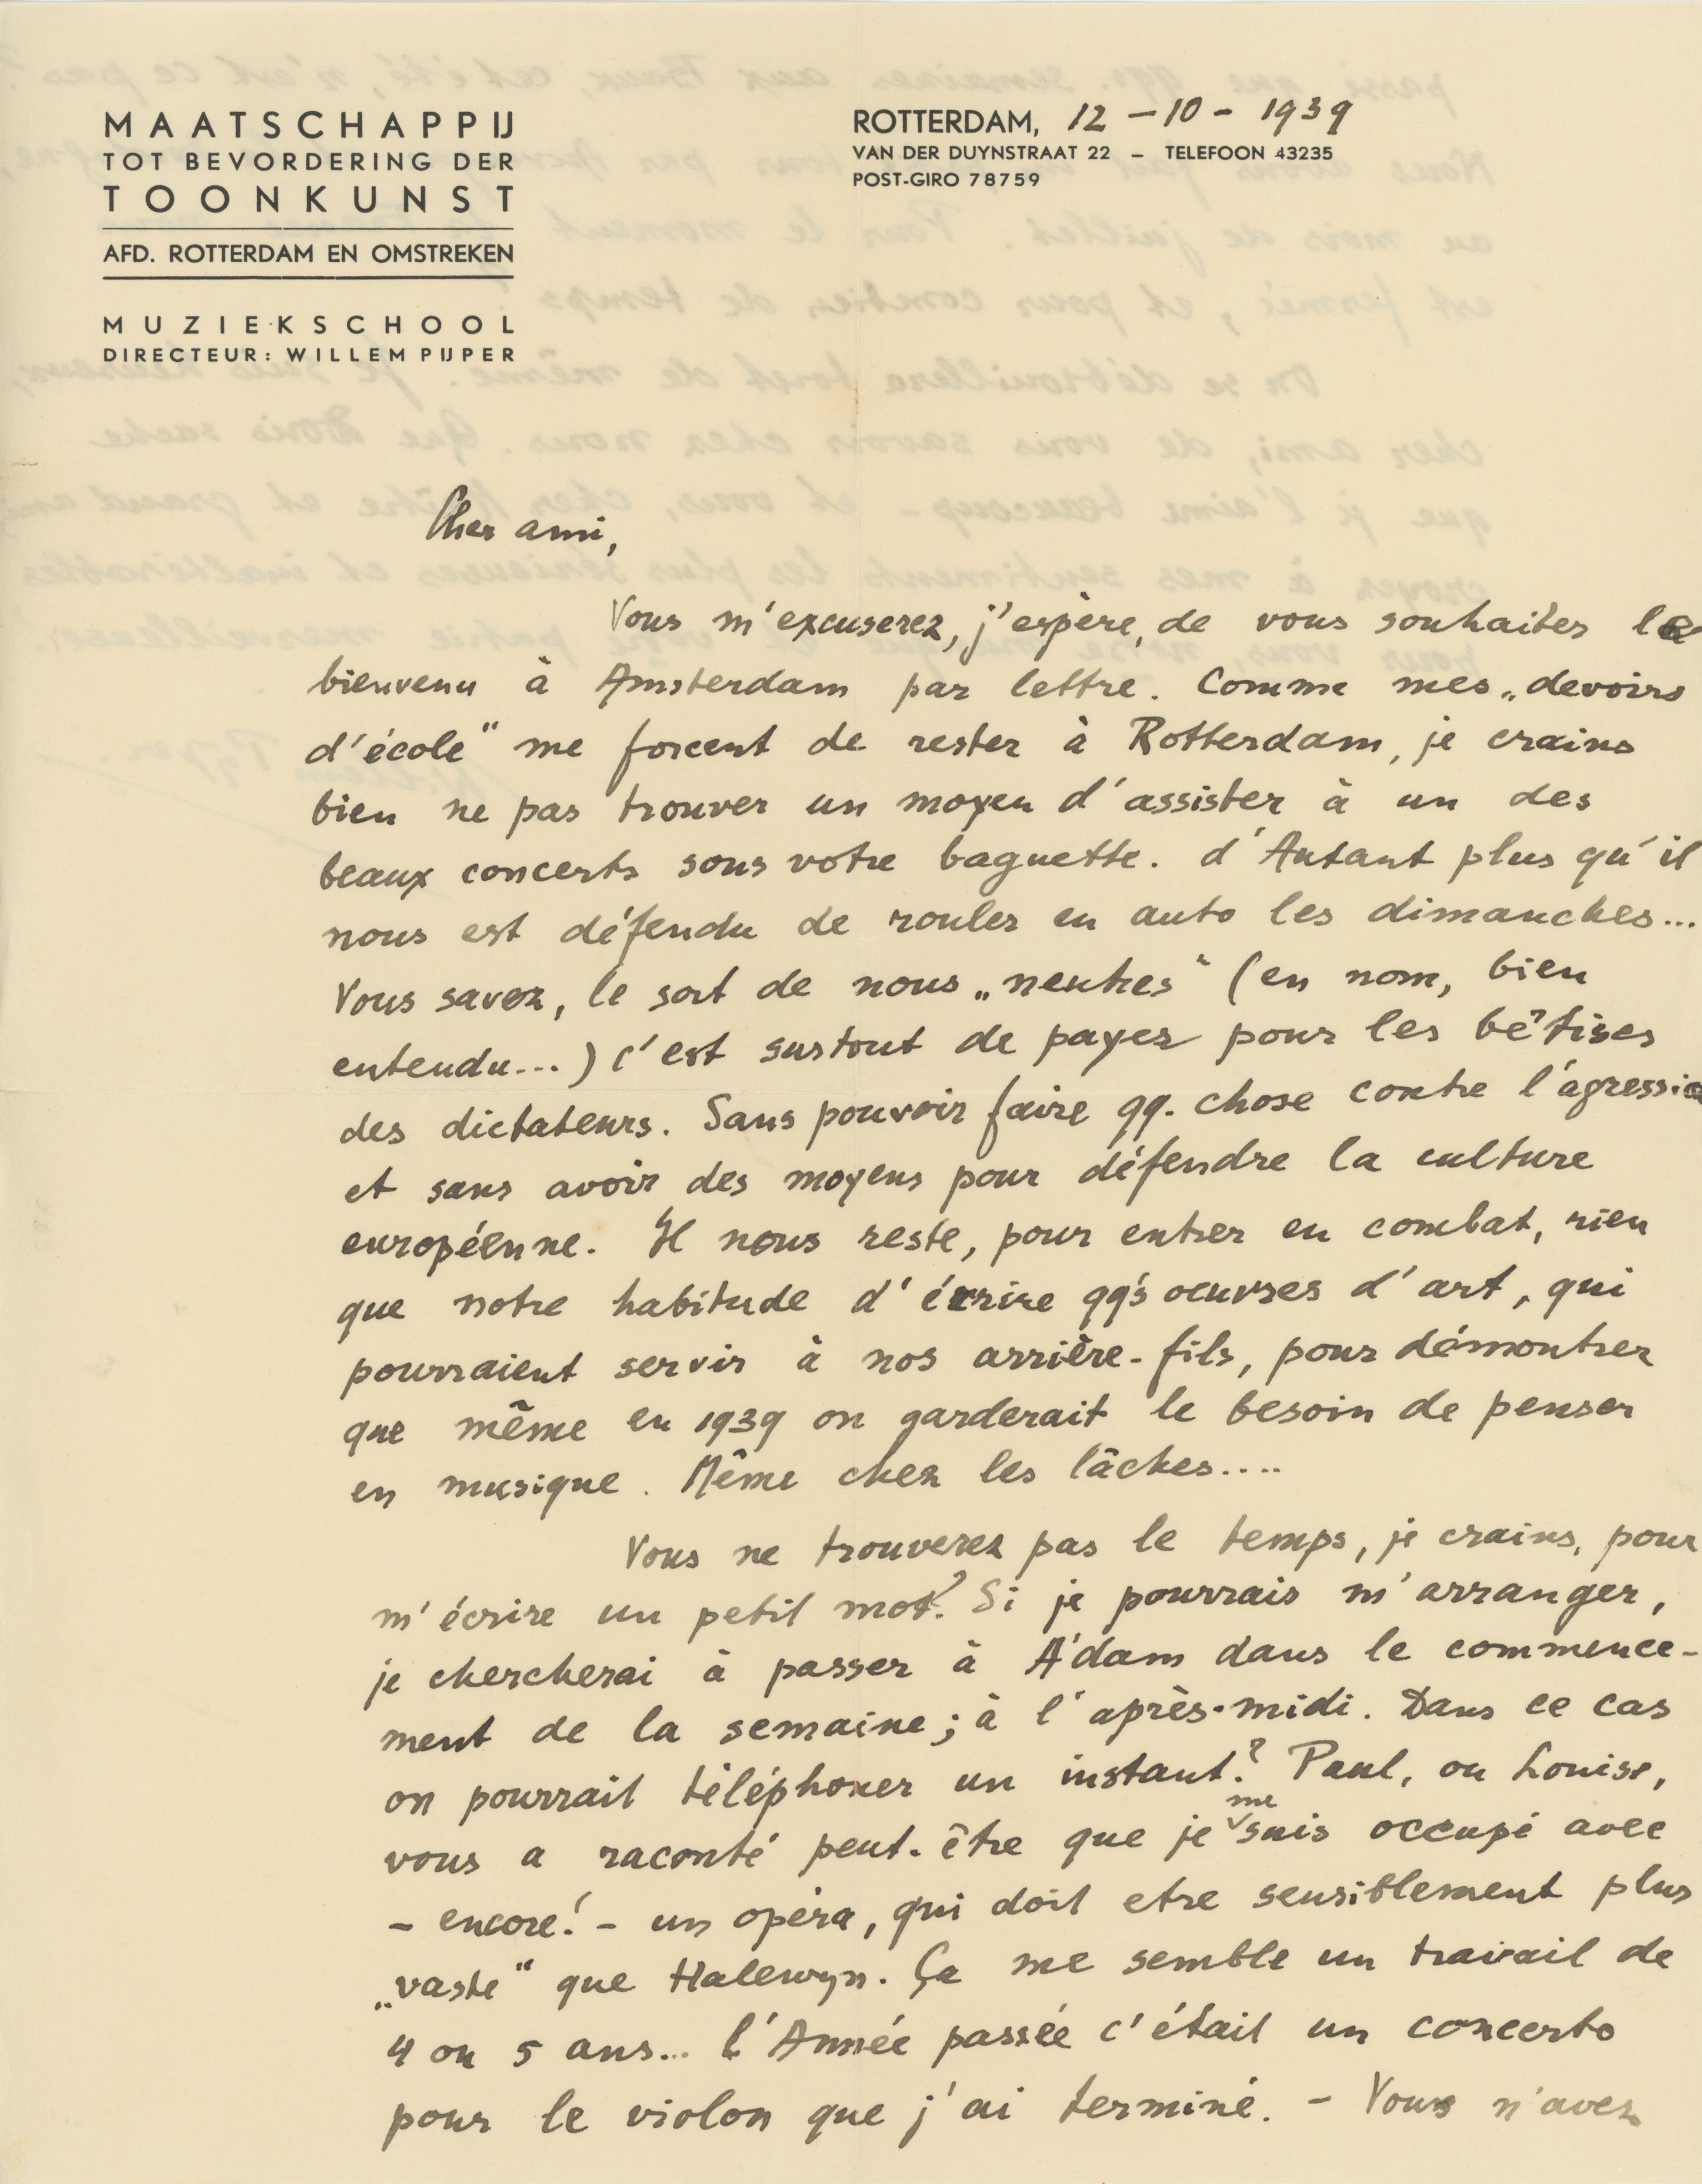 MAATSCHAPPIJ
TOT BEVORDERING DER
TOONKUNST
AFD. ROTTERDAM EN OMSTREKEN
MUZIEKSCHOOL
DIRECTEUR: WILLEM PIJPER
ROTTERDAM, 12-10-1939
VAN DER DUYNSTRAAT 22 – TELEFOON 43235
POST-GIRO 78759
Cher ami,
Vous m'excuserez, j'espère, de vous souhaiter la
bienvenu à Amsterdam par lettre. Comme mes „devoirs
d'école" me forcent de rester à Rotterdam, je crains
bien ne pas trouver un moyen d'assister à un des
beaux concerts sous votre baguette. d'Autant plus qu'il
nous est défendu de rouler en auto les dimanches...
Vous savez, le sort de nous „neutres" (en nom, bien
entendu...) c'est surtout de payer pour les bêtises
des dictateurs. Sans pouvoir faire qq. chose contre l'agression
et sans avoir des moyens pour défendre la culture
européenne. Il nous reste, pour entrer en combat, rien
que notre habitude d'écrire qqs oeuvres d'art, qui
pourraient servir à nos arrière-fils, pour démontrer
que même en 1939 on garderait le besoin de penser
en musique. Même chez les lâches....
Vous ne trouverez pas le temps, je crains, pour
m'écrire un petit mot? Si je pourrais m'arranger,
je chercherai à passer à A'dam dans le commence-
ment de la semaine; à l'après-midi. Dans ce cas
on pourrait téléphoner un instant? Paul, ou Louise,
vous a raconté peut-être que je me suis occupé avec
– encore! – un opéra, qui doit etre sensiblement plus
„vaste" que Halewyn. Ça me semble un travail de
4 ou 5 ans... l'Année passée c'était un concerto
pour le violon que j'ai terminé. – Vous n'avez